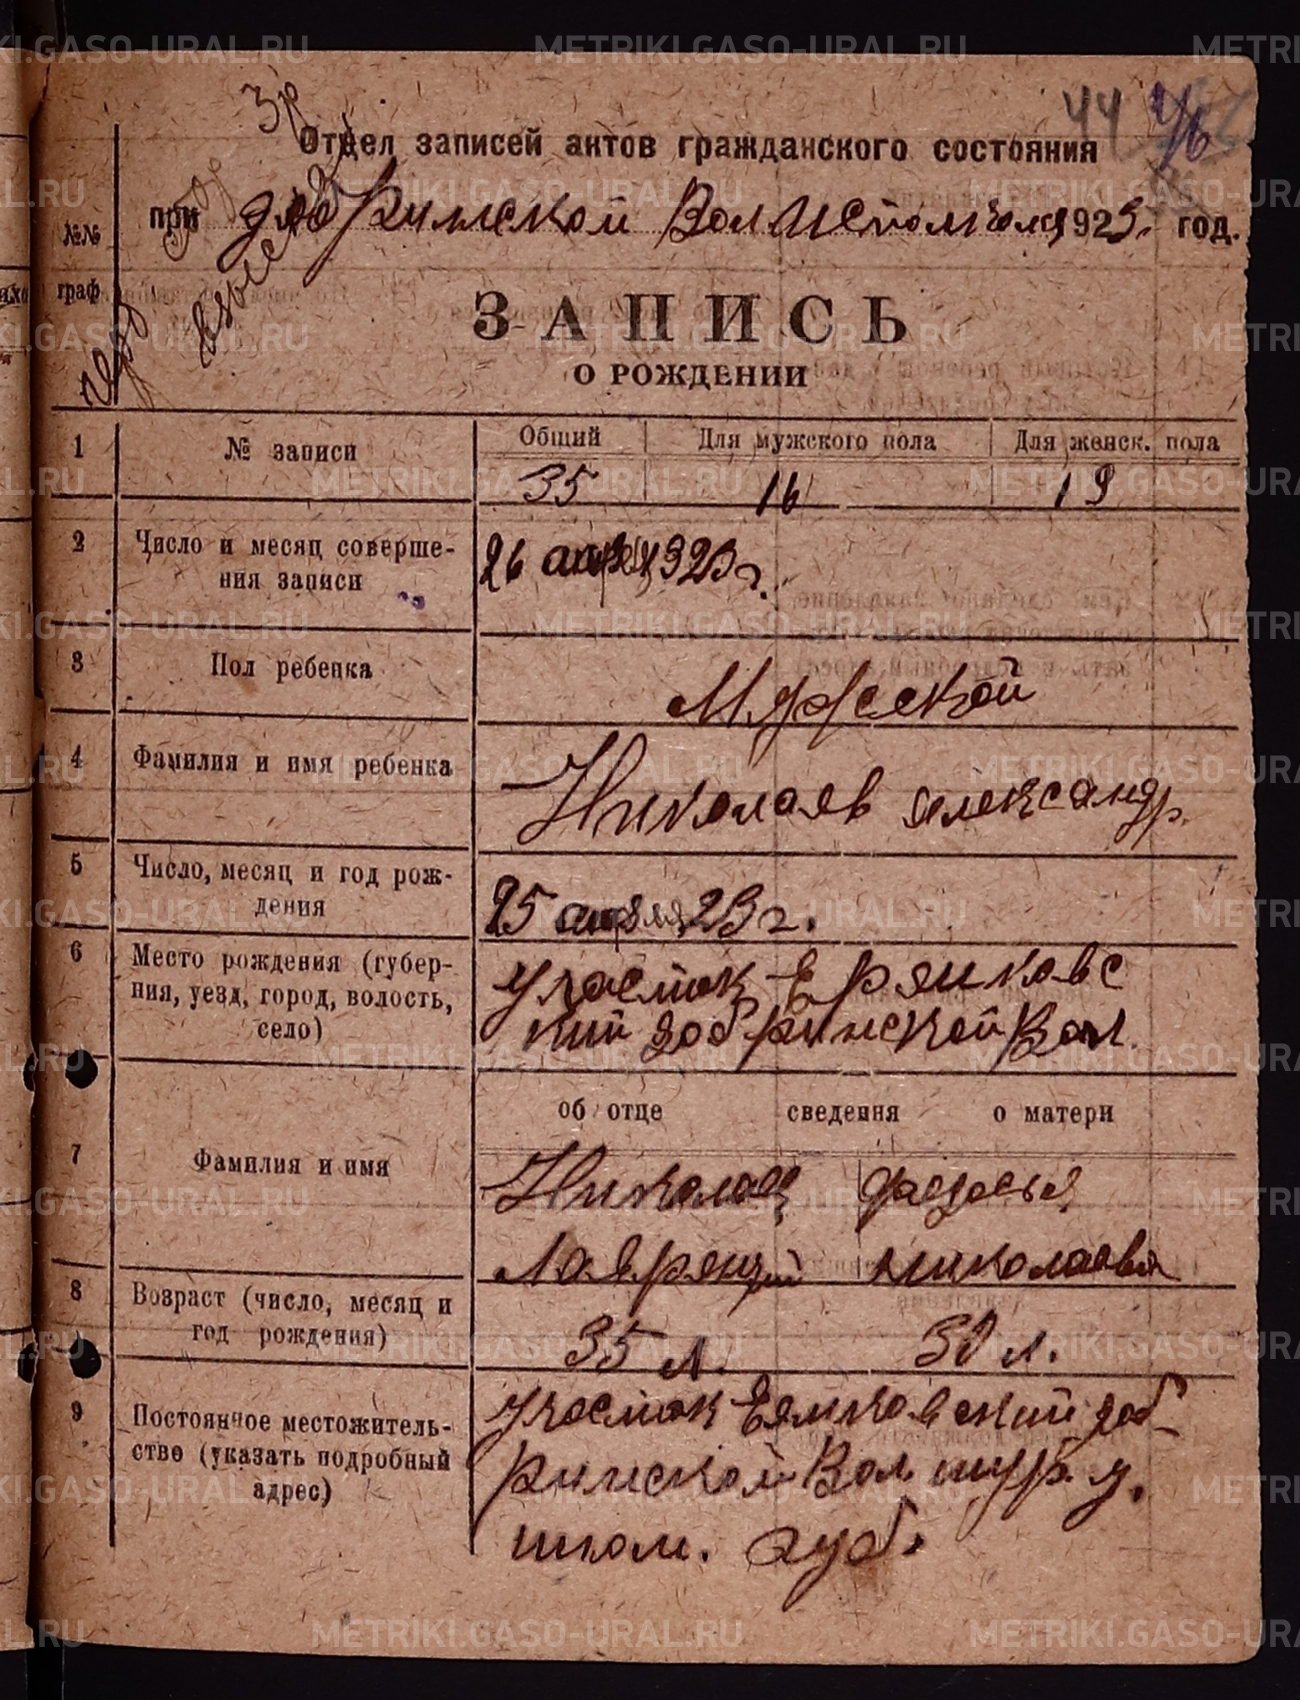 44
Отдел записей актов гражданского состояния
при Добринской Вол Исполкоме 1923 год.
№№
граф
ЗАПИСЬ
О РОЖДЕНИИ
1 № записи Общий Для мужского пола Для женск. пола
35 16 19
2 Число и месяц соверше-
ния записи
26 апреля 1923 г.
3 Пол ребенка
Мужеской
4 Фамилия и имя ребенка
Николаев Александр
5 Число, месяц и год рож-
дения
25 апреля 23 г.
6 Место рождения (губер-
ния, уезд, город, волость,
село)
участок
кий Добринской Вол.
об отце сведения о матери
7 Фамилия и имя
Николаев Федосья
Лаврентий Николаева
8 Возраст (число, месяц и
год рождения)
35 л. 30 л.
9 Постоянное местожитель-
ство (указать подробный
адрес)
участок Доб
ринской Вол. у.
губ.
METRIKI.GASO-URAL.RU